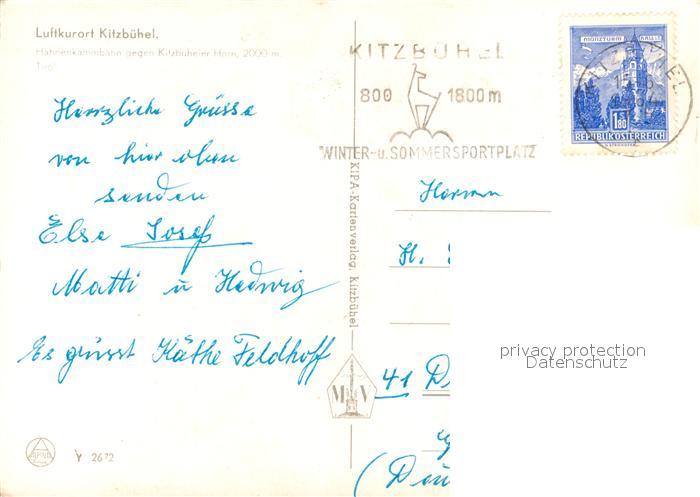 Luftkurort Kitzbühel.
Hahnenkammbahn gegen Kitzbüheler Horn, 2000 m
Tirol
Herzliche Grüsse
von hier oben
senden
Else Josef
Matti u Hedwig
Es grüsst Käthe Feldhoff
Y 2672
KIPA-Kartenverlag, Kitzbühel
M V
KITZBÜHEL
800 1800m
WINTER-u. SOMMERSPORTPLATZ
MÜNZTURM HALL
1.80
REPUBLIK ÖSTERREICH
KITZBÜHEL
Herrn
H.
41 D
(Deu
privacy protection
Datenschutz